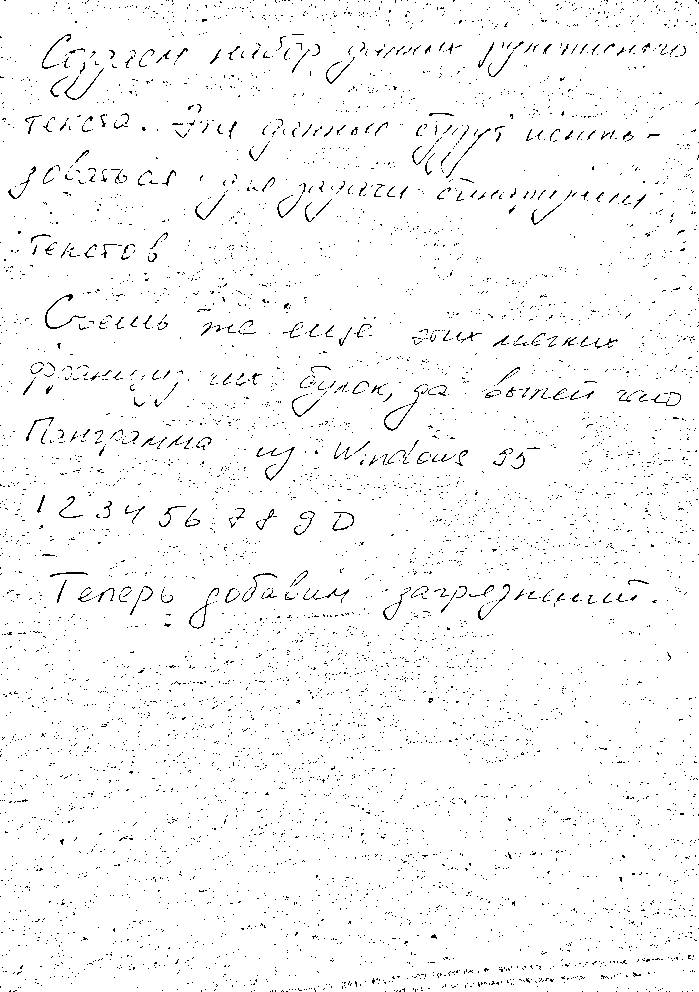 Создаем набор данных рукописного
текста. Эти данные будут исполь-
зоваться для задачи бинаризации
текстов
Съешь же ещё этих мягких
французских булок, да выпей чаю
Панграмма из Windows 95
1 2 3 4 5 6 7 8 9 0
Теперь добавим загрязнений.